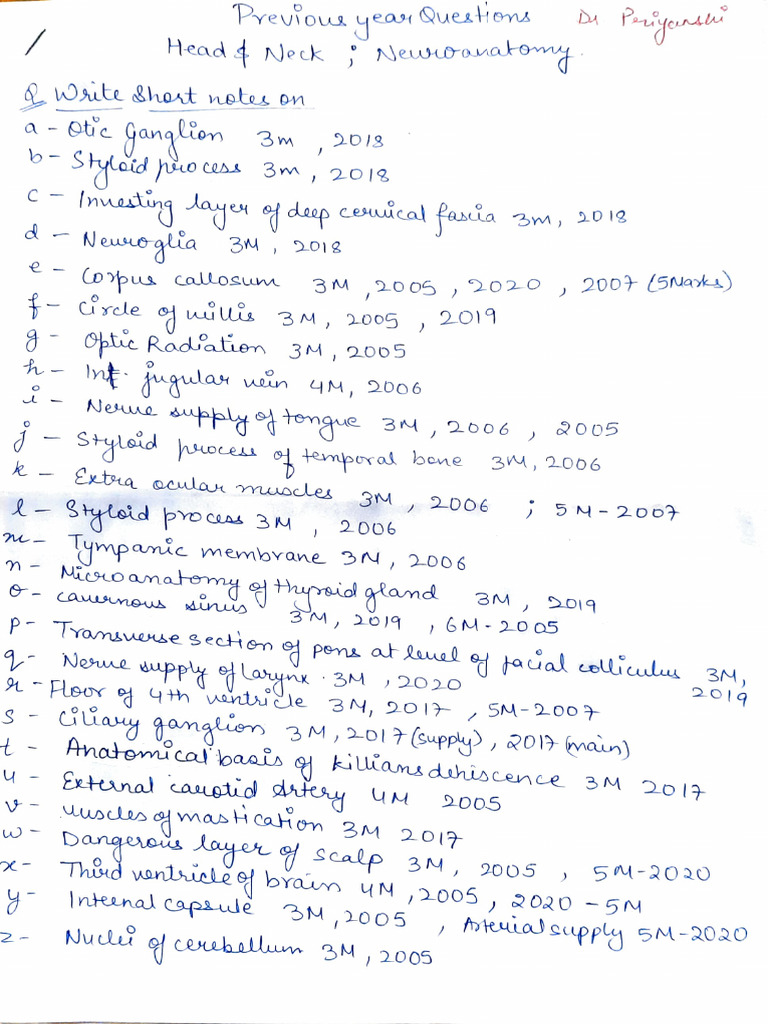 Previous year Questions Dr Periyanshi
Head & Neck ; Neuroanatomy.
Q Write Short notes on
a - Otic Ganglion 3m , 2018
b - Styloid process 3m , 2018
c - Investing layer of deep cervical fascia 3m, 2018
d - Neuroglia 3M , 2018
e - Corpus callosum 3M , 2005 , 2020 , 2007 (5Marks)
f - Circle of willis 3M , 2005 , 2019
g - Optic Radiation 3M , 2005
h - Int. jugular vein 4M , 2006
i - Nerve supply of tongue 3M , 2006 , 2005
j - Styloid process of temporal bone 3M, 2006
k - Extra ocular muscles 3M , 2006 ; 5M-2007
l - Styloid process 3M , 2006
m - Tympanic membrane 3M , 2006
n - Microanatomy of thyroid gland 3M , 2019
o - cavernous sinus 3M , 2019 , 6M-2005
p - Transverse section of pons at level of facial colliculus 3M, 2019
q - Nerve supply of Larynx . 3M , 2020
r - Floor of 4th ventricle 3M, 2017 , 5M-2007
s - Ciliary ganglion 3M , 2017 (supply) , 2017 (main)
t - Anatomical basis of killians dehiscence 3M 2017
u - External carotid Artery 4M 2005
v - Muscles of mastication 3M 2017
w - Dangerous layer of scalp 3M , 2005 , 5M-2020
x - Third ventricle of brain 4M , 2005 , 2020 - 5M
y - Internal capsule 3M , 2005 , Arterial supply 5M-2020
z - Nuclei of cerebellum 3M , 2005